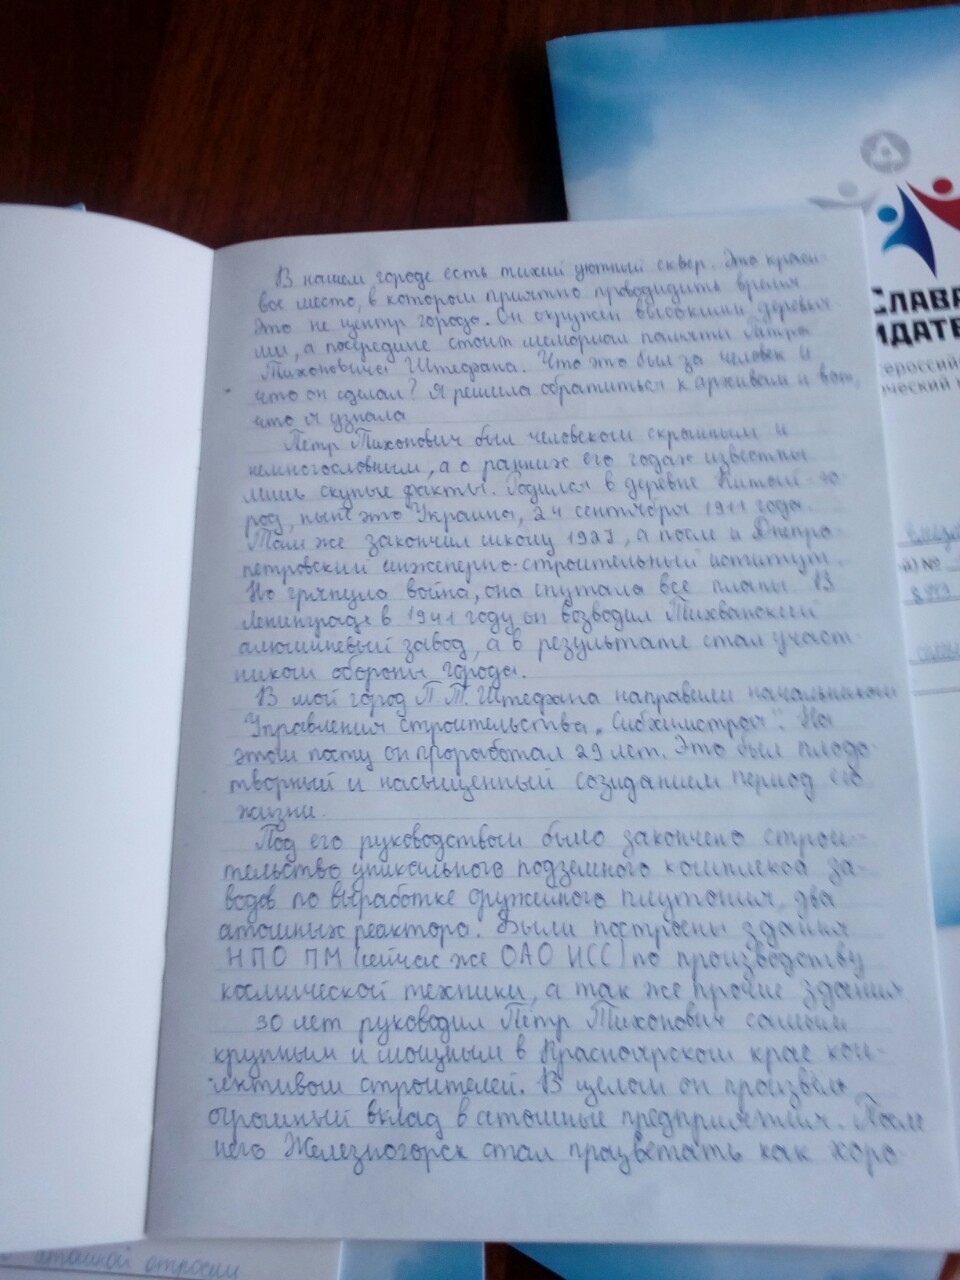 В нашем городе есть тихий уютный сквер. Это краси-
вое место, в котором приятно проводидить время
Это не центр города. Он окружен высокими деревья
ми, а посредине стоит мемориал памяти Петра
Тихоновича Штефана. Что это был за человек и
что он сделал? Я решила обратиться к архивам и вот,
что я узнала
Пётр Тихонович был человеком скромным и
немногословным, а о ранних его годах известны
лишь скупые факты. Родился в деревне Китай-го-
род, ныне это Украина, 24 сентября 1911 года.
Там же закончил школу 1927, а после и Днепро-
петровский инженерно-строительный иститут.
Но грянула война, она спутала все планы. В
Ленинграде в 1941 году он возводил Тихванский
алюминевый завод, а в результате стал участ-
ником обороны города.
В мой город П.Т. Штефана направили начальником
Управления строительства „Сибхимстрой". На
этом посту он проработал 29 лет. Это был плодо-
творный и насыщенный созиданием период его
жизни.
Под его руководством было закончено строи-
тельство уникального подземного комплекса за-
водов по выработке оружейного плутония, два
атомных реактора. Были построены здания
НПО ПМ (сейчас же ОАО ИСС) по производству
космической техники, а так же прочие здания
30 лет руководил Пётр Тихонович самым
крупным и мощным в Красноярском крае кол-
лективом строителей. В целом он произвел
огромный вклад в атомные предприятия. После
него Железногорск стал процветать как хоро-
СЛАВА
ИДАТЕ
сероссийс
ческий к
й) №
атомной отросли